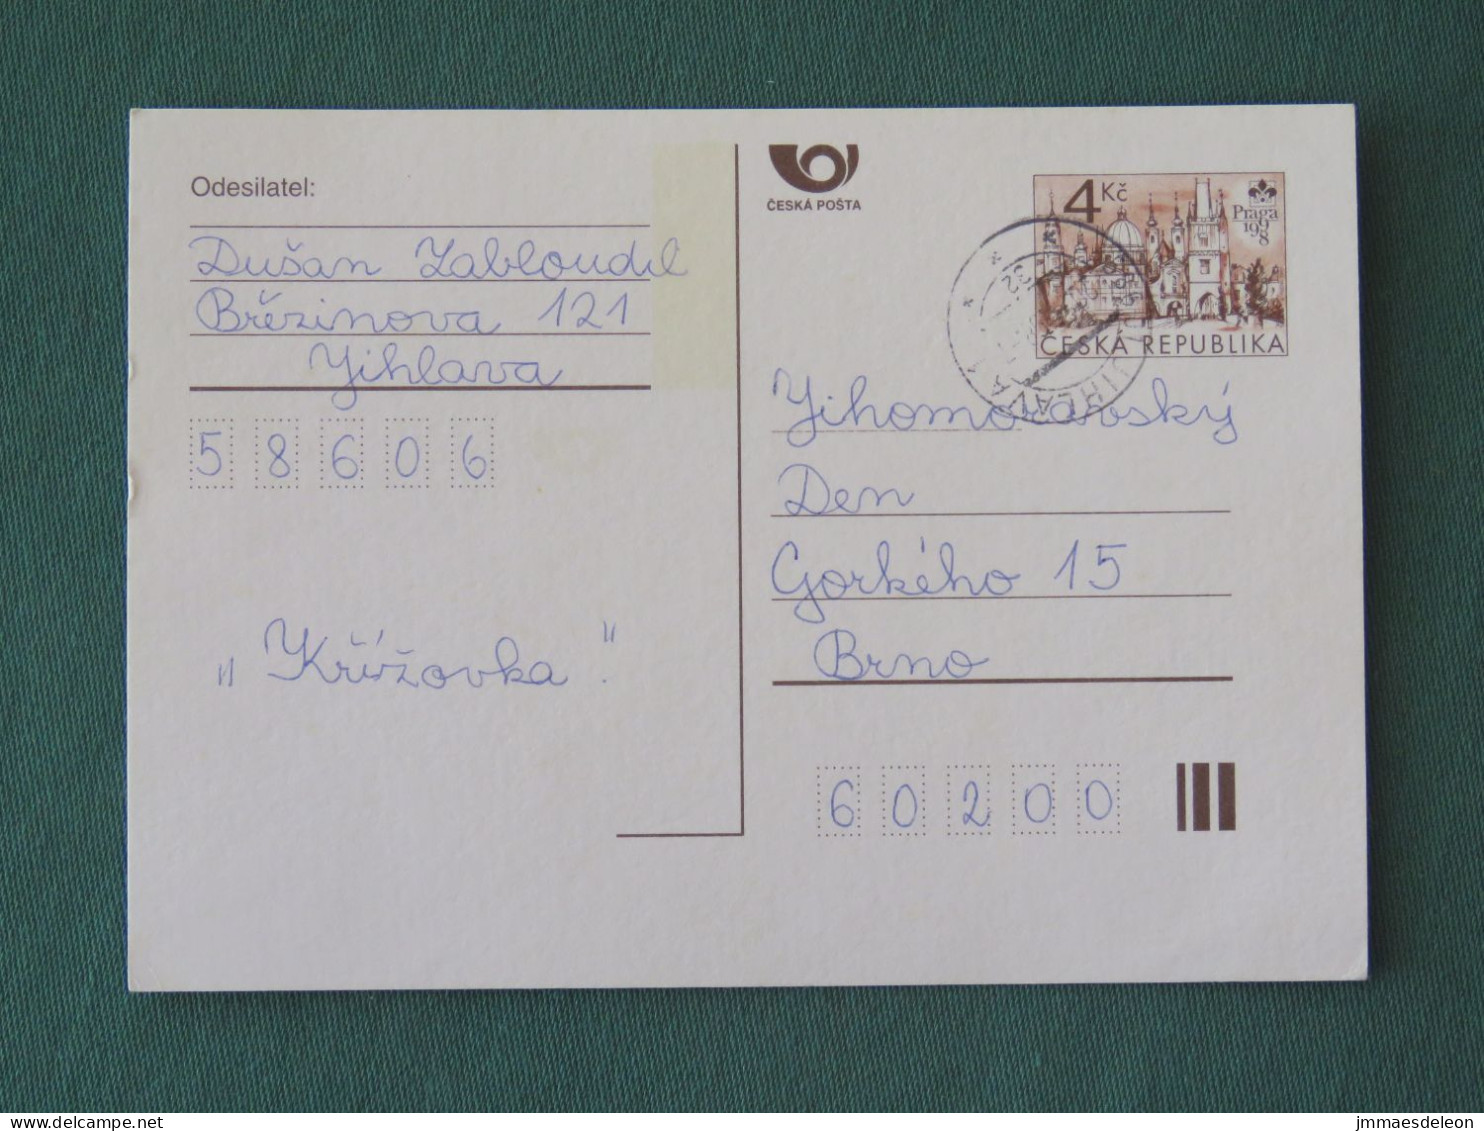 Odesilatel:
Dušan Zabloudil
Březinova 121
Jihlava
58606
„Křížovka"
ČESKÁ POŠTA
4 Kč
Praga
1998
ČESKÁ REPUBLIKA
JIHLAVA 1
Jihomoravský
Den
Gorkého 15
Brno
60200
jmmaesdeleon